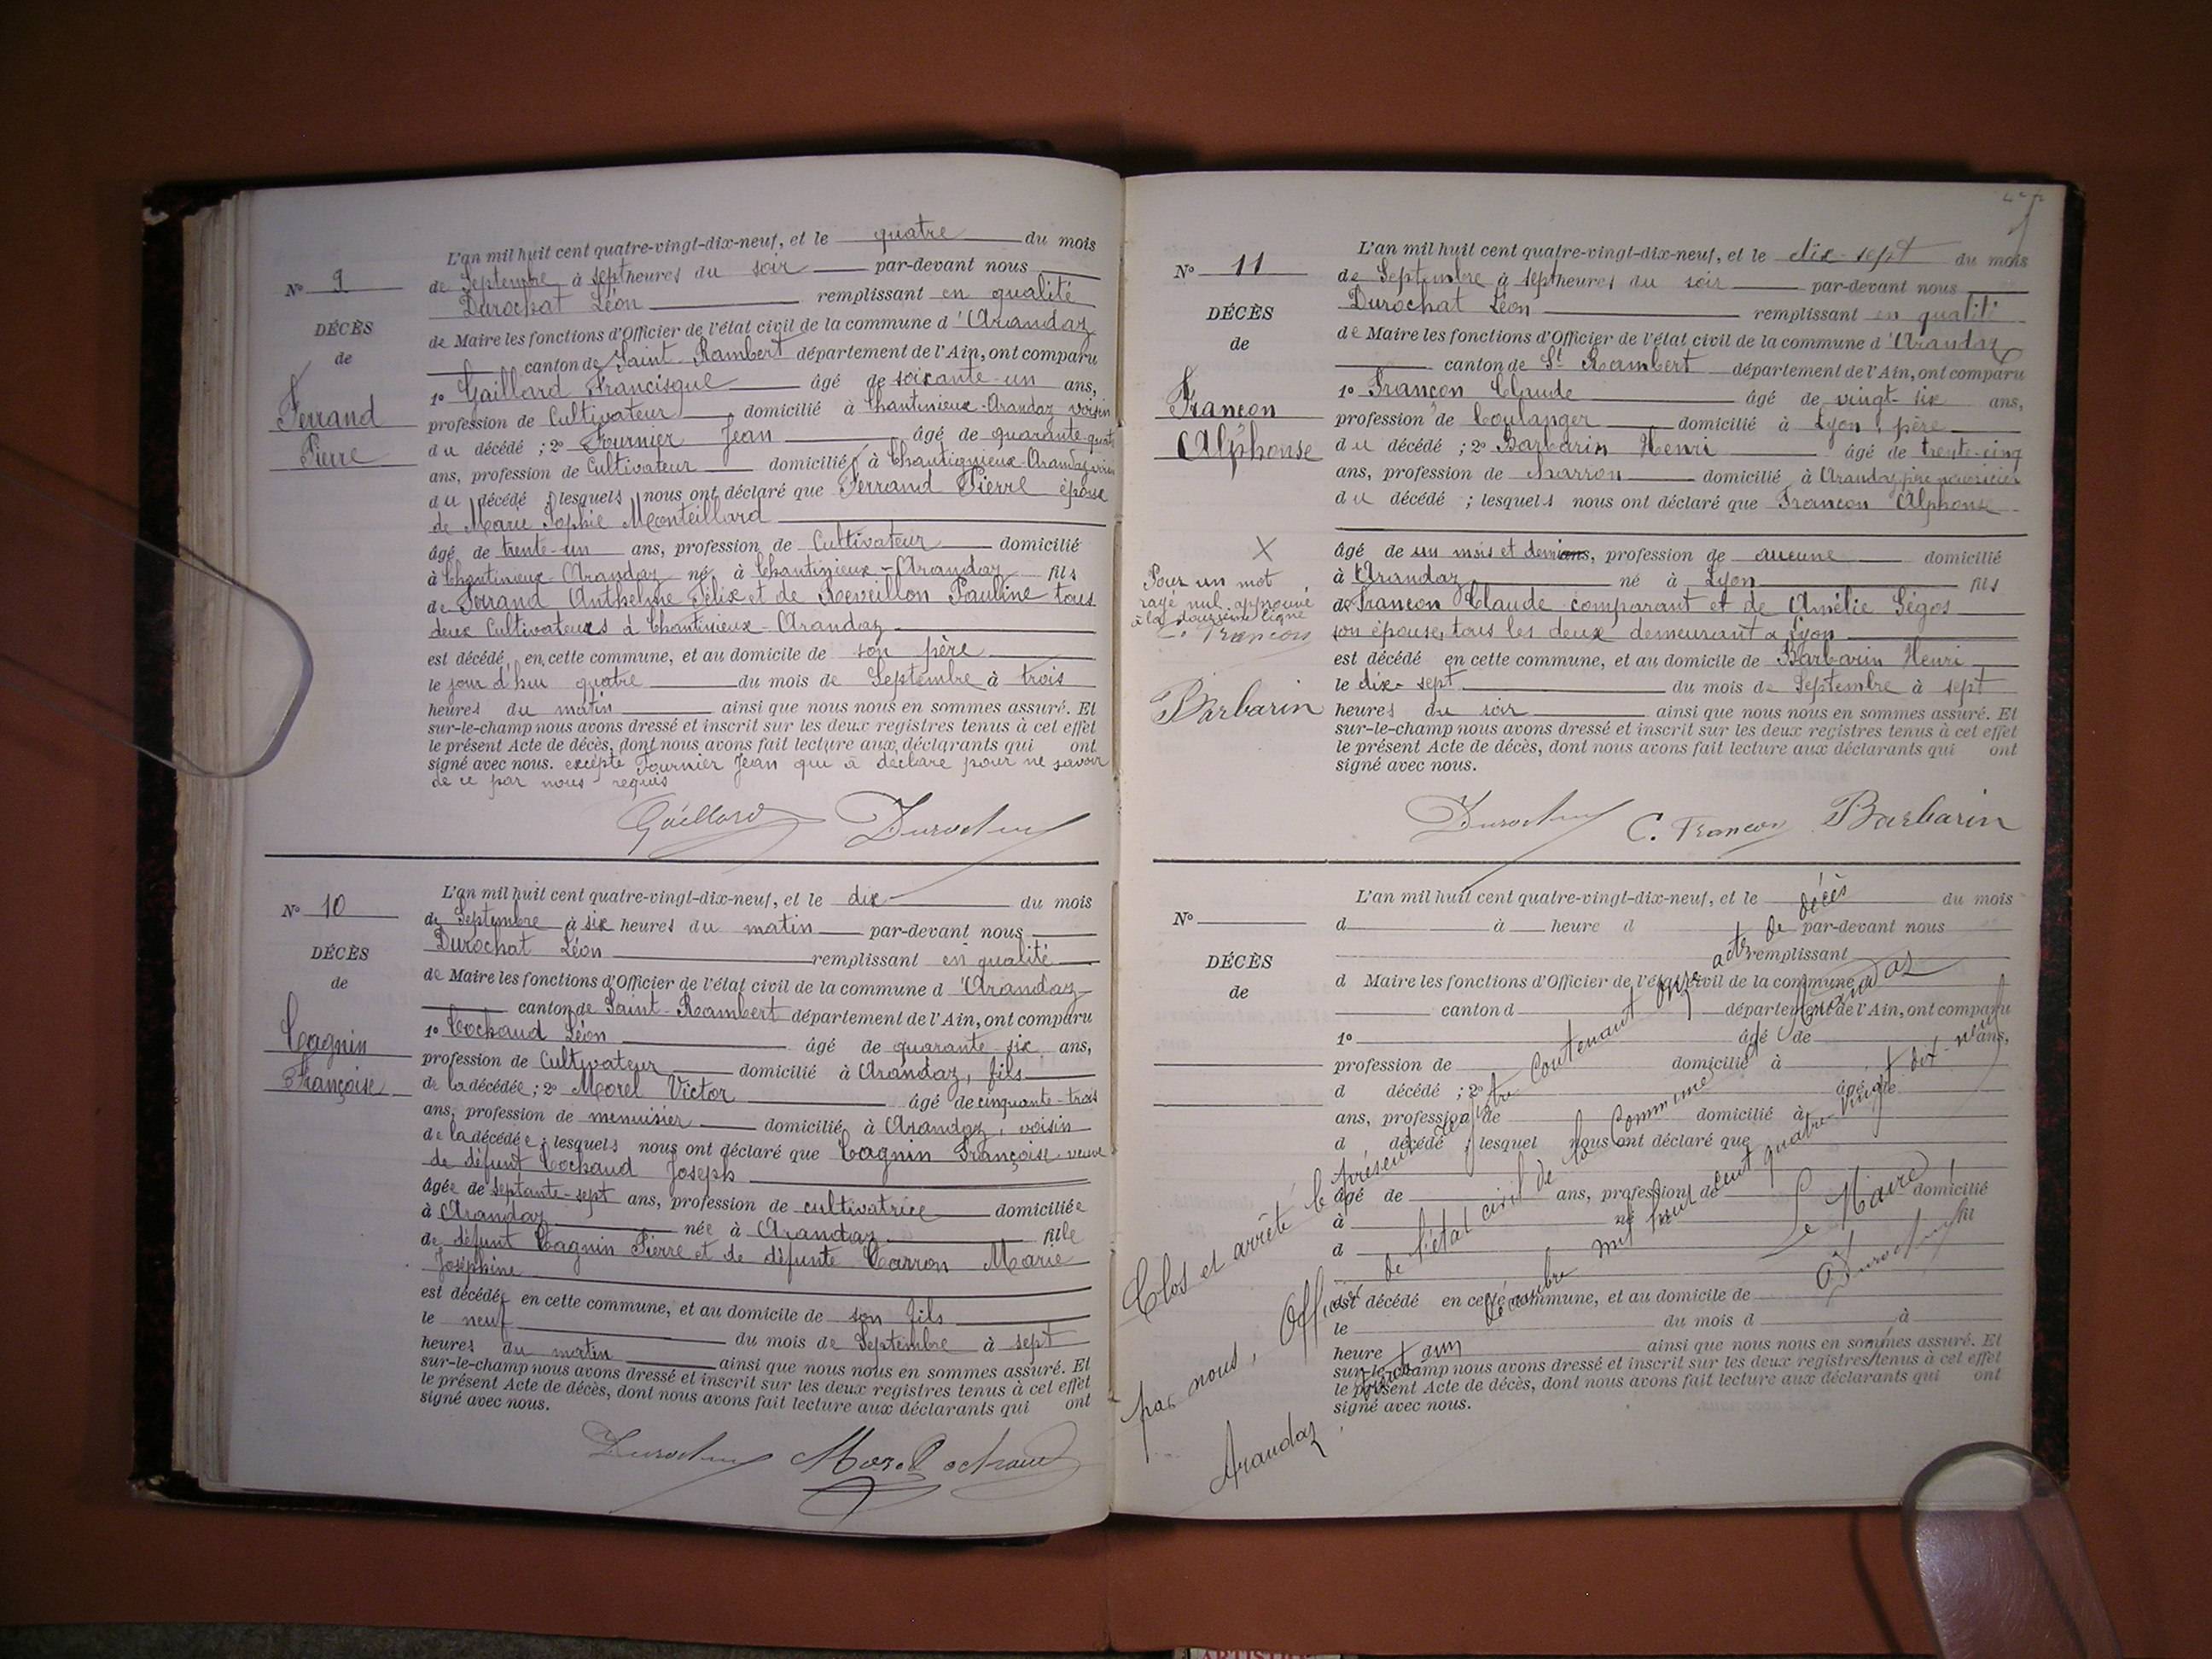 L'an mil huit cent quatre-vingt-dix-neuf, et le quatre du mois
N° 9
de Septembre à sept heures du soir par-devant nous
Durochat Léon remplissant en qualité
DÉCÈS
de Maire les fonctions d'Officier de l'état civil de la commune d'Arandaz
de
canton de Saint-Rambert département de l'Ain, ont comparu
1° Gaillard Francisque âgé de soixante-un ans,
Ferrand
profession de Cultivateur domicilié à Chantinieux-Arandaz voisin
Pierre
du décédé ; 2° Fournier Jean âgé de quarante-quatre
ans, profession de Cultivateur domicilié à Chantignieux-Arandaz voisin
du décédé ; lesquels nous ont déclaré que Ferrand Pierre époux
de Marie Sophie Monteillard
âgé de trente-un ans, profession de Cultivateur domicilié
à Chantinieux-Arandaz né à Chantinieux-Arandaz fils
de Ferrand Anthelme Félix et de Reveillon Pauline tous
deux Cultivateurs à Chantinieux-Arandaz
est décédé en cette commune, et au domicile de son père
le jour d'hui quatre du mois de Septembre à trois
heures du matin ainsi que nous nous en sommes assuré. Et
sur-le-champ nous avons dressé et inscrit sur les deux registres tenus à cet effet
le présent Acte de décès, dont nous avons fait lecture aux déclarants qui ont
signé avec nous. excepté Fournier Jean qui a déclaré pour ne savoir
de ce par nous requis
Gaillard Durochat
L'an mil huit cent quatre-vingt-dix-neuf, et le dix du mois
N° 10
de Septembre à six heures du matin par-devant nous
Durochat Léon remplissant en qualité
DÉCÈS
de Maire les fonctions d'Officier de l'état civil de la commune d'Arandaz
de
canton de Saint-Rambert département de l'Ain, ont comparu
1° Cochaud Léon âgé de quarante-six ans,
Cagnin
profession de Cultivateur domicilié à Arandaz, fils
Françoise
de la décédée ; 2° Morel Victor âgé de cinquante-trois
ans, profession de menuisier domicilié à Arandaz, voisin
de la décédée ; lesquels nous ont déclaré que Cagnin Françoise veuve
de défunt Cochaud Joseph
âgée de septante-sept ans, profession de cultivatrice domiciliée
à Arandaz née à Arandaz fille
de défunt Cagnin Pierre et de défunte Carron Marie
Joséphine
est décédée en cette commune, et au domicile de son fils
le neuf du mois de Septembre à sept
heures du matin ainsi que nous nous en sommes assuré. Et
sur-le-champ nous avons dressé et inscrit sur les deux registres tenus à cet effet
le présent Acte de décès, dont nous avons fait lecture aux déclarants qui ont
signé avec nous.
Durochat Morel Cochaud
L'an mil huit cent quatre-vingt-dix-neuf, et le dix-sept du mois
N° 11
de Septembre à sept heures du soir par-devant nous
Durochat Léon remplissant en qualité
DÉCÈS
de Maire les fonctions d'Officier de l'état civil de la commune d'Arandaz
de
canton de St Rambert département de l'Ain, ont comparu
1° Françon Claude âgé de vingt-six ans,
Françon
profession de boulanger domicilié à Lyon, père
Alphonse
du décédé ; 2° Barbarin Henri âgé de trente-cinq
ans, profession de charron domicilié à Arandaz père nourricier
du décédé ; lesquels nous ont déclaré que Françon Alphonse
âgé de un mois et demi ans, profession de aucune domicilié
à Arandaz né à Lyon fils
de Françon Claude comparant et de Amélie Ségos
son épouse, tous les deux demeurant à Lyon
est décédé en cette commune, et au domicile de Barbarin Henri
le dix-sept du mois de Septembre à sept
heures du soir ainsi que nous nous en sommes assuré. Et
sur-le-champ nous avons dressé et inscrit sur les deux registres tenus à cet effet
le présent Acte de décès, dont nous avons fait lecture aux déclarants qui ont
signé avec nous.
X
Pour un mot
rayé nul approuvé
à la douzième ligne
C. Françon
Barbarin
Durochat C. Françon Barbarin
L'an mil huit cent quatre-vingt-dix-neuf, et le du mois
N°
d à heure d par-devant nous
remplissant
DÉCÈS
d Maire les fonctions d'Officier de l'état civil de la commune
de
canton d département de l'Ain, ont comparu
1° âgé de ans,
profession de domicilié à
d décédé ; 2° âgé de
ans, profession de domicilié à
d décédé ; lesquel nous ont déclaré que
âgé de ans, profession de domicilié
à né à
d fil
est décédé en cette commune, et au domicile de
le du mois d à
heure ainsi que nous nous en sommes assuré. Et
sur-le-champ nous avons dressé et inscrit sur les deux registres tenus à cet effet
le présent Acte de décès, dont nous avons fait lecture aux déclarants qui ont
signé avec nous.
Clos et arrêté le présent registre contenant onze actes de décès
par nous, Officier de l'état civil de la Commune d'Arandaz
Arandaz, trente un décembre mil huit cent quatre-vingt dix-neuf
Le Maire,
Durochat